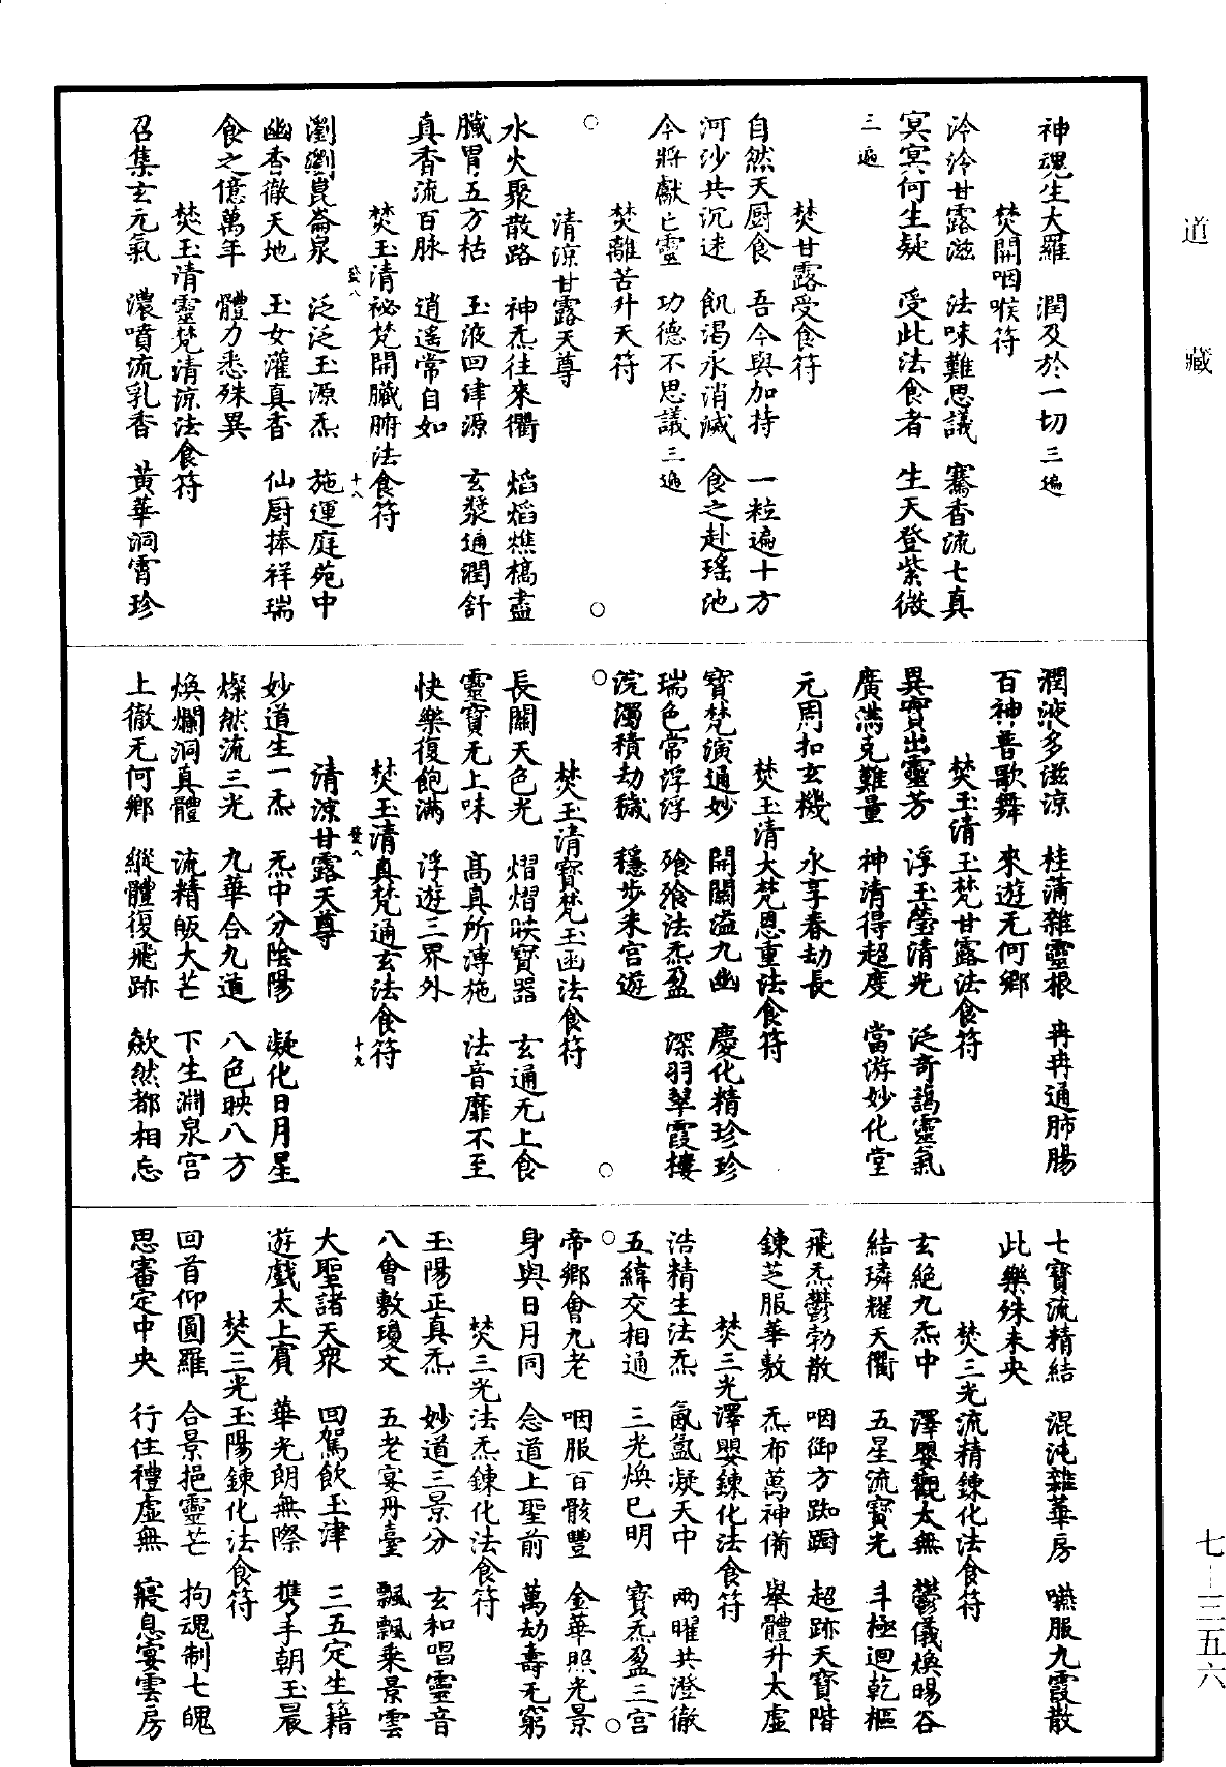 神魂生大羅　潤及於一切三遍
焚開咽喉符
泠泠甘露滋　法味難思議　騫香流七真
冥冥何生疑　受此法食者　生天登紫微
三遍
焚甘露受食符
自然天厨食　吾今與加持　一粒遍十方
河沙共沉迷　飢渴永消滅　食之赴瑤池
今將獻亡靈　功德不思議三遍
焚離苦升天符
○　○
清涼甘露天尊
水火聚散路　神炁往來衢　焰焰燋槁盡
臟胃五方枯　玉液回津源　玄漿通潤舒
真香流百脉　逍遙常自如
焚玉清祕梵開臟腑法食符
瀏瀏崑崙泉　泛泛玉源炁　施運庭苑中
幽香徹天地　玉女灌真香　仙厨捧祥瑞
食之億萬年　體力悉殊異
焚玉清靈梵清涼法食符
召集玄元氣　濃噴流乳香　黃華洞霄珍
潤液多滋涼　桂蒲雜靈根　冉冉通肺腸
百神普歌舞　來遊无何鄉
焚玉清玉梵甘露法食符
異寶出靈芳　浮玉瑩清光　泛奇謁靈氣
廣濟克難量　神清得超度　當游妙化堂
元周扣玄機　永享春劫長
焚玉清大梵恩重法食符
寶梵演通妙　開關溢九幽　慶化精珍珍
瑞色常浮浮　飱飱法炁盈　深羽翠霞樓
浣濁積劫穢　穩步来宫遊
○　○
焚玉清寶梵玉函法食符
長關天色光　熠熠映寶器　玄通无上食
靈寶无上味　髙真所溥施　法音靡不至
快樂復飽滿　浮遊三界外
焚玉清真梵通玄法食符
清涼甘露天尊
妙道生一炁　炁中分陰陽　凝化日月星
燦然流三光　九華合九道　八色映八方
煥爛洞真體　流精皈大芒　下生淵泉宮
上徹无何鄉　縱體復飛跡　歘然都相忘
七寶流精結　混沌雜華房　嚥服九霞散
此樂殊未央
焚三光流精鍊化法食符
玄絶九炁中　澤嬰觀太無　鬱儀煥暘谷
結璘耀天衢　五星流寶光　斗極迴乾樞
飛炁鬱勃散　咽御方踟蹰　超跡天寶階
鍊芝服華敷　炁布萬神備　舉體升太虚
焚三光澤嬰鍊化法食符
浩精生法炁　氤氲凝天中　兩曜共澄徹
五緯交相通　三光煥已明　寶炁盈三宮
○　○
帝鄉會九老　咽服百骸豐　金華照光景
身與日月同　念道上聖前　萬劫壽无窮
焚三光法炁鍊化法食符
玉陽正真炁　妙道三景分　玄和唱靈音
八會敷瓊文　五老宴丹臺　飄飄乘景雲
大聖諸天衆　回駕飲玉津　三五定生籍
遊戲太上賓　華光朗無際　携手朝玉晨
焚三光玉陽鍊化法食符
回首仰圓羅　合景挹靈芒　拘魂制七魄
思審定中央　行住禮虚無　寢息宴雲房
道藏
七—三五六